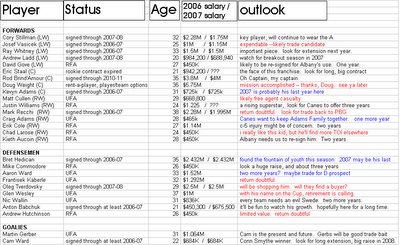 Player Status Age 2006 salary / 2007 salary outlook
FORWARDS
Cory Stillman (LW) signed through 2007-08 32 $2.28M / $1.75M key player, will continue to wear the A
Josef Vasicek (LW) signed through 2006-07 25 $1M / $1.5M expendable--likely trade candidate
Ray Whitney (LW) signed through 2006-07 33 $1M / $1.5M important piece. look for extension next year.
Andrew Ladd (LW) signed through 2007-08 20 $984,200 / $688,940 watch for breakout season in 2007
David Gove (LW) RFA 27 $450K likely to be re-signed for Albany's use. One year.
Eric Staal (C) rookie contract expired 21 $942,200 / ??? the face of this franchise. look for long, big contract
Rod Brind'Amour (C) signed through 2010-11 35 $4M / $3.6M Oh Captain, my captain
Doug Weight (C) rent-a-player, playersteam options 35 $5.75M mission accomplished -- thanks, Doug. see ya later
Kevyn Adams (C) signed through 2006-07 31 $725k / $725k 2007 is probably his last year here
Matt Cullen (RW) UFA 29 $669,800 likely free agent casualty
Justin Williams (RW) RFA 24 $1.225 / ??? a rising superstar, look for Canes to offer three years
Mark Recchi (RW) signed through 2006-07 38 $2.28M / $1.995M return doubtful. look for trade back to PBG
Craig Adams (RW) UFA 28 $465k Canes want to keep Adams Family together. one more year
Erik Cole (RW) RFA 27 $1.14M c-5 injury might be of concern. two years
Chad Larose (RW) RFA 24 $450K I really like this kid, but he'll find more TOI elsewhere
Kieth Aucoin (RW) RFA 28 $450K Albany needs us to re-sign him. Two years.
DEFENSEMEN
Bret Hedican signed through 2006-07 35 $2.432M / $2.432M found the fountain of youth this season 2007 may be his last
Mike Commodore RFA 26 $450K look for a huge raise, and three years
Aaron Ward UFA 33 $1.52M two more years? maybe trade for D prospect
Frantisek Kaberle UFA 32 $1.292M return doubtful
Oleg Tverdovsky signed through 2007-08 30 $2.5M / $2.5M will be shopping him. will they find a buyer?
Glen Wesley UFA 37 $1M with his name on the Cup, retirement is calling.
Nic Wallin UFA 31 $836K every team needs an evil Swede. two more years.
Anton Babchuk signed through at least 2006-07 21 $450,300 / $675,500 It'll be fun to watch his growth. hopefully here for a long time.
Andrew Hutchinson RFA 26 $450K limited value. return doubtful
GOALIES
Martin Gerber UFA 31 $1.064M Cam is the present and future. Gerbs will be good trade bait
Cam Ward signed through at least 2006-07 22 $684K / $684K Conn Smythe winner. look for long extension, big raise in 2008.